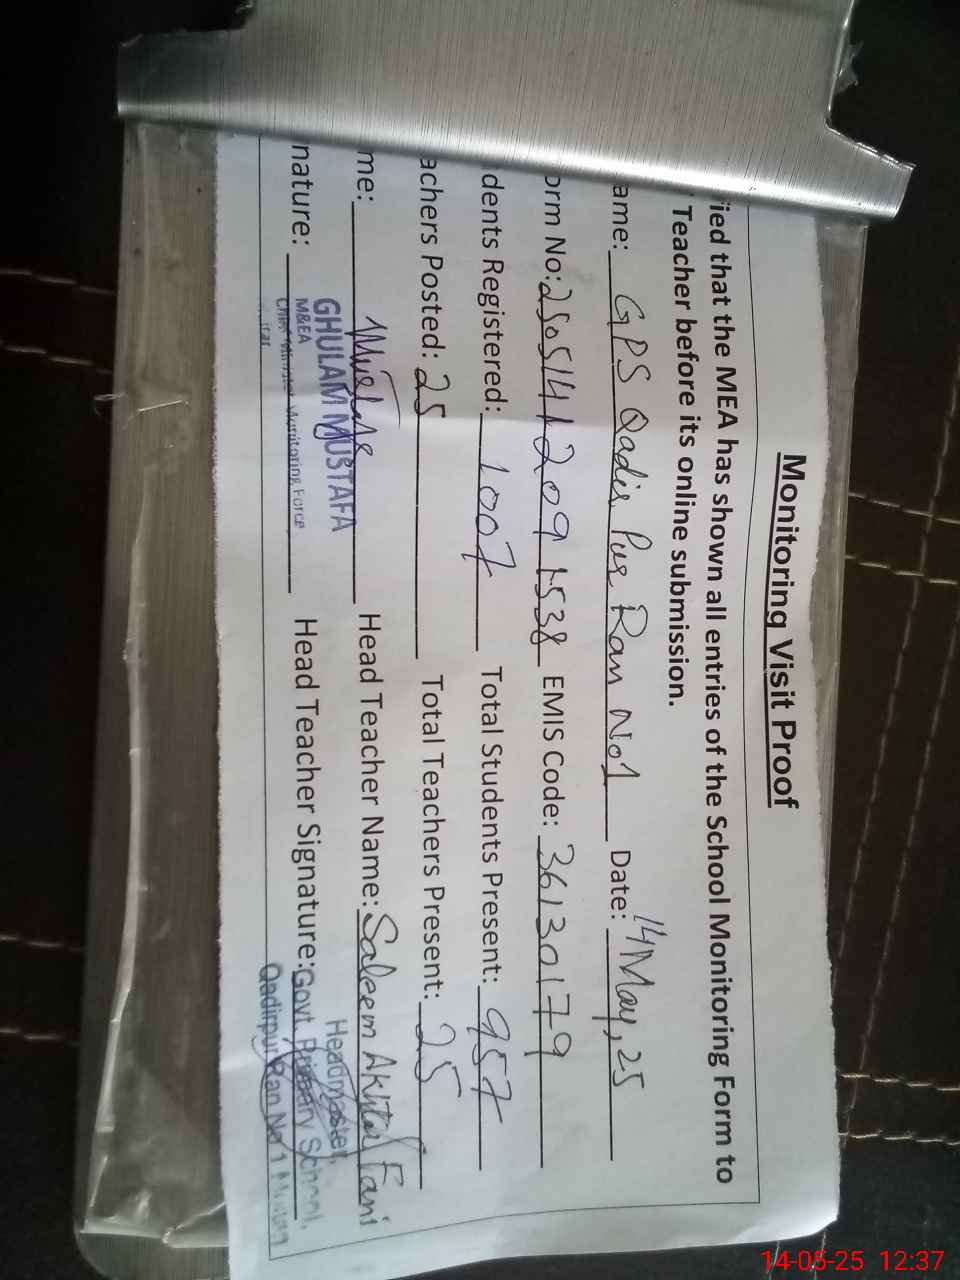 Monitoring Visit Proof
ied that the MEA has shown all entries of the School Monitoring Form to
Teacher before its online submission.
ame: GPS Qadir Pur Ran No1 Date: 14 May, 25
orm No: 250514 1209 1538 EMIS Code: 36130179
dents Registered: 1007 Total Students Present: 957
achers Posted: 25 Total Teachers Present: 25
me: Mustafa Head Teacher Name: Saleem Akhtar
nature: Head Teacher Signature:
GHULAM MUSTAFA
M&EA
Monitoring Force
Headmaster,
Govt. Primary School,
Qadirpur Ran No 1
14-05-25 12:37